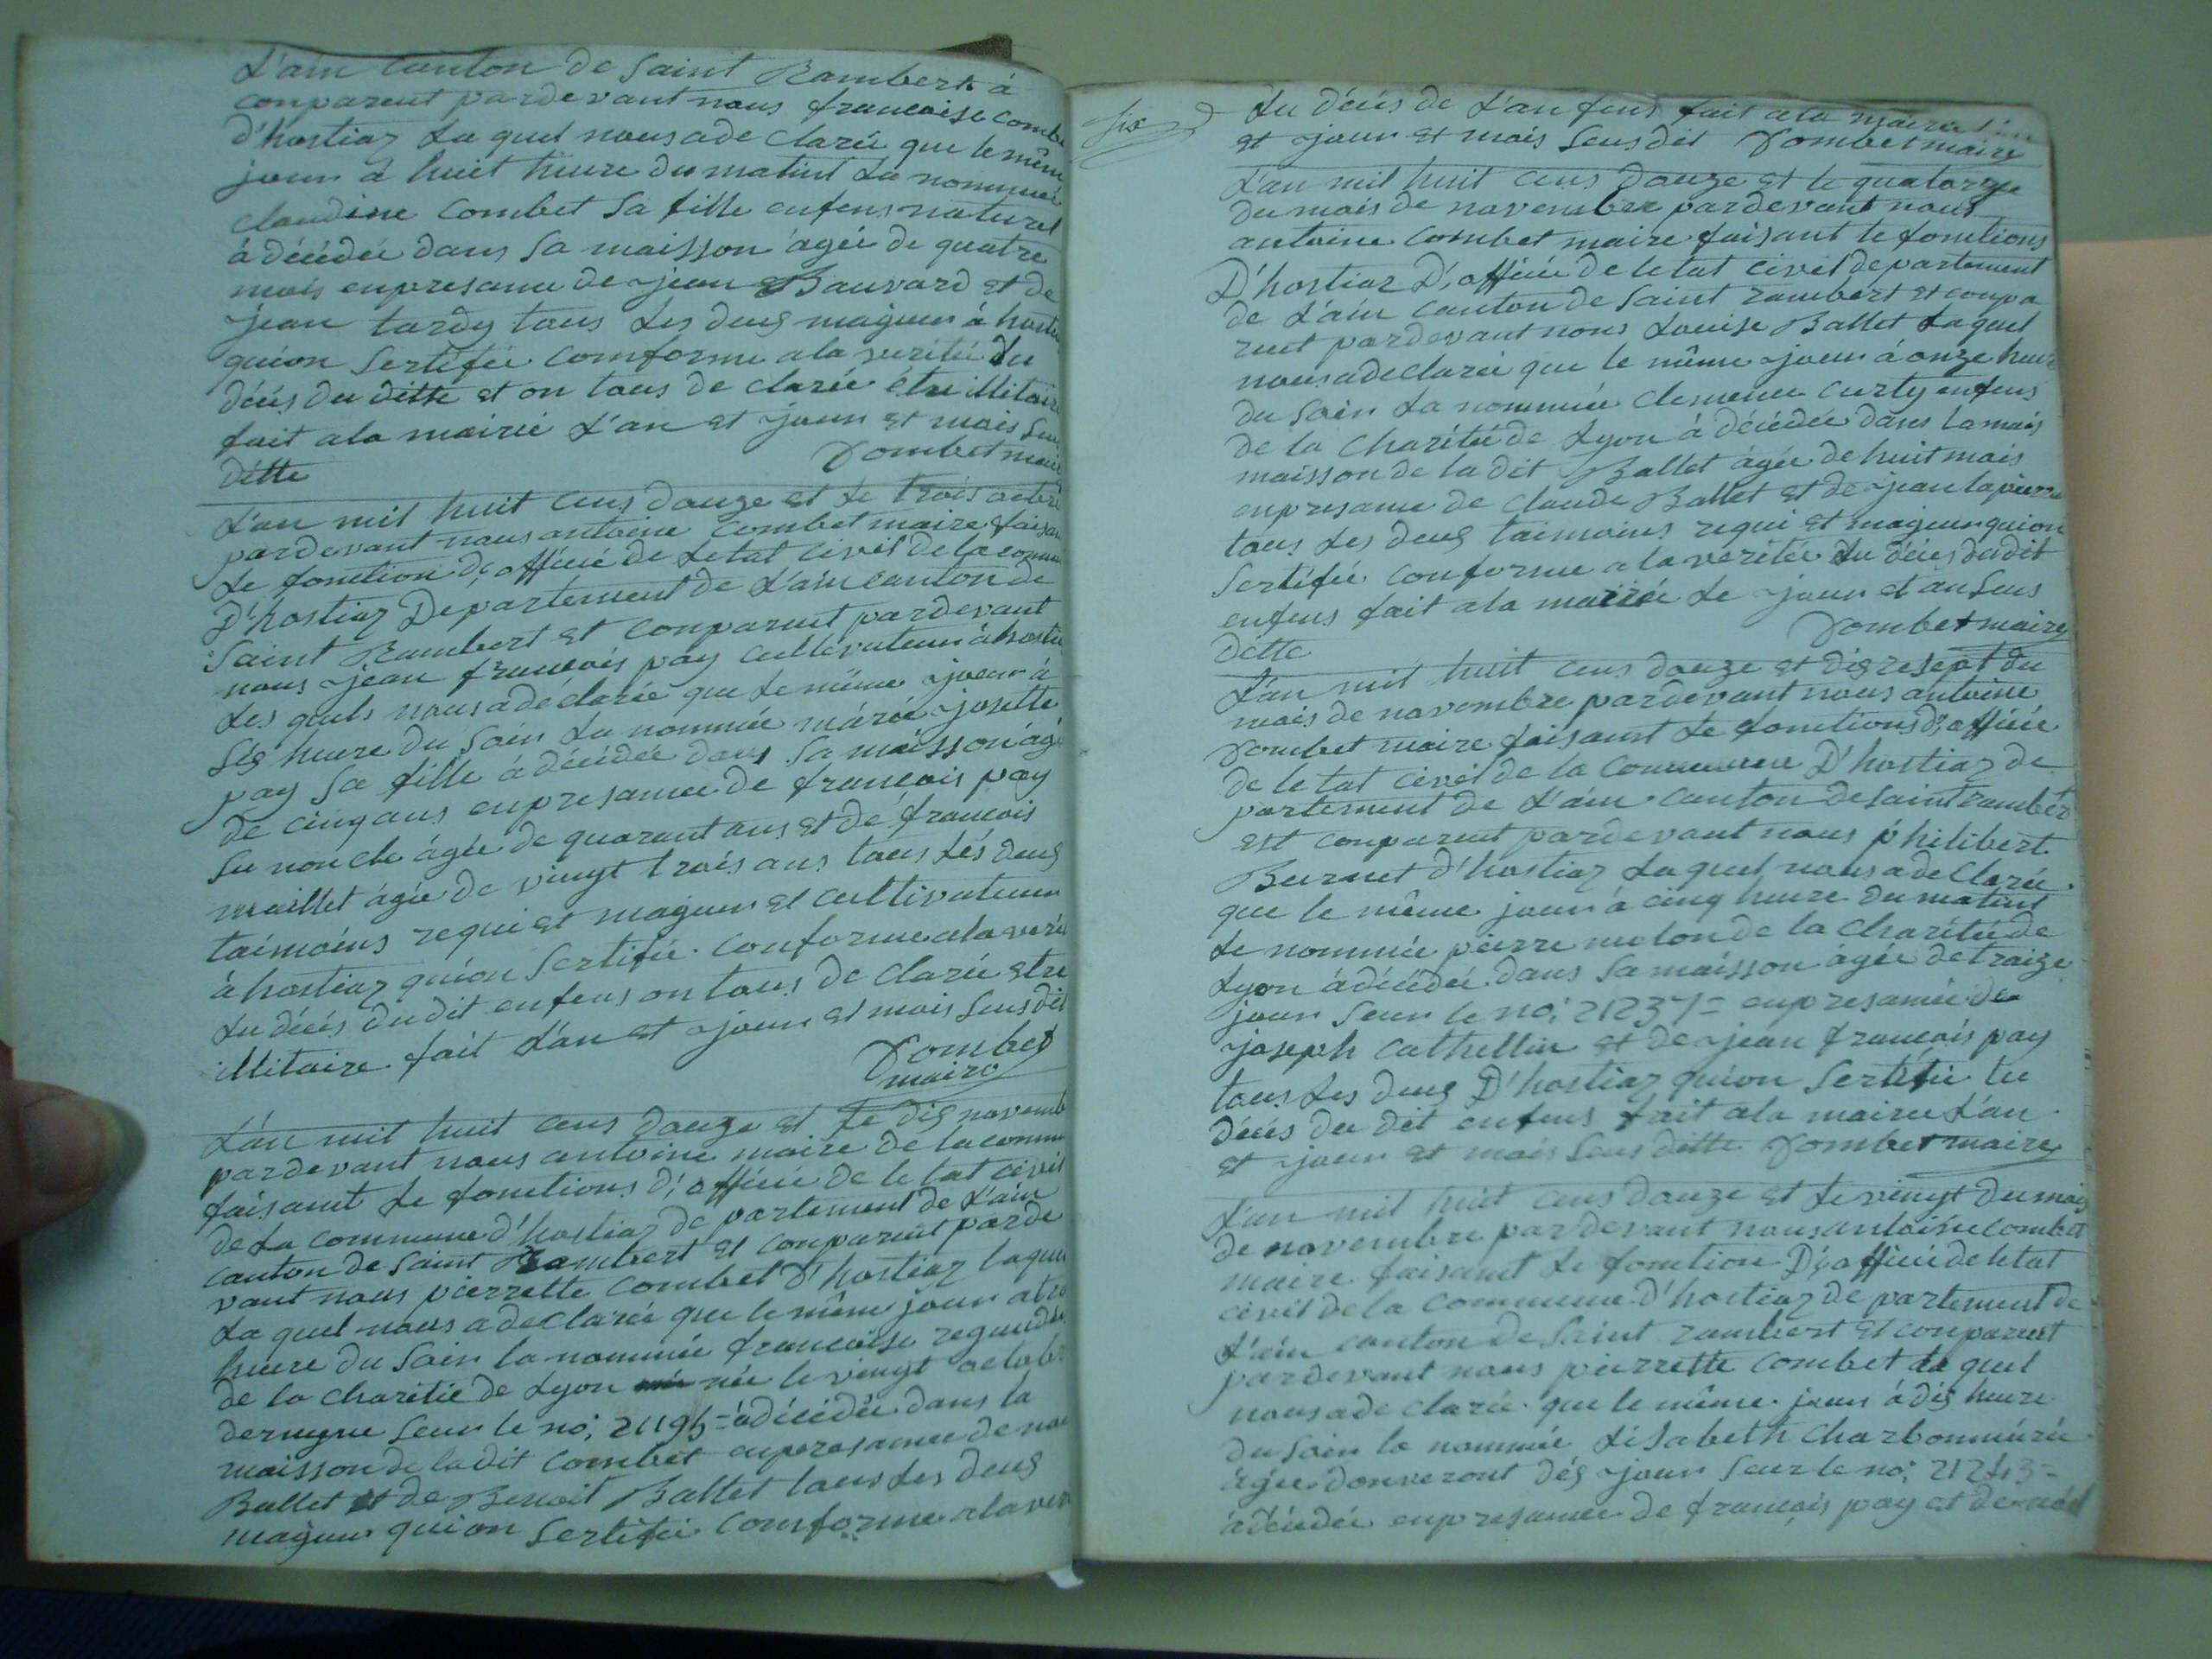 L'ain Canton de Saint Rambert à
conparent pardevant nous francoise combe
d'hostiaz La quel nousade clarée que le mêm
jour à huit heure du matint La nommée
claudine Combet Sa fille enfens naturel
à décédée dans Sa maisson âgée de quatre
mois enpresance de jean Bauvard et de
jean tardy tous Les deus mageur à hosti
quion Sertifée Comforme ala veritée du
décés du ditte et on tous de clarée étre illitaire
fait ala mairie L'an et jour et mois Sus
ditte Combet maire
L'an mil huit Cens douze et Le trois octobre
pardevant nous antoine Combet maire faisan
Le fonction d'officié de Letat Civil de la commu
D'hostiaz Departement de L'ain Canton de
Saint Rambert et conparent pardevant
nous jean francois pay Cultivateur à hostia
Les quels nousadéclarée que Le même jour à
sis heure du Soir La nommée mârie josette
pay Sa fille à décédée dans Sa maisson âgé
de cinq ans enpresance de francois pay
Su noncle âgée de quarant ans et de francois
maillet âgée de vingt trois ans tous Lés deus
taimoins requi et mageur et cultivateur
à hostiaz quion Sertifié Conforme ala verit
du décés dudit enfens on tous de clarée etre
illitaire fait L'an et jour et mois Susdit
Combet
maire
L'an mil huit Cens douze et Le dis novemb
pardevant nous antoine maire de la commu
faisant Le fonctions d'officié de Letat civil
de La commune d'hostiaz de partement de L'ain
Canton de Saint Rambert et conparent parde
vant nous pierrette Combet d'hostiaz laquel
La quel nous a declarée que le même jour a tro
heure du Soir la nommée francoise
de la Charitée de Lyon née le vingt octobr
dernyne Sour le no; 21195 = à décédée dans la
maisson de ladit Combet enpresance de
Ballet et de Benoit Ballet tous Les deus
mageur quion Sertifié Comforme ala veri
six
du décés de L'anfens fait ala mairie L'an
et jour et mois Sus dit Combet maire
L'an mil huit Cens douze et le quatorze
du mois de november pardevant nous
antoine Combet maire faisant le fonctions
D'hostiaz D'officié de letat Civil departement
de L'ain Canton de Saint rambert et conpa
rent pardevant nous Louise Ballet La quel
nousadeclarée que le même jour à onze heur
du Soir La nommée Clemence Curty enfens
de la Charitée de Lyon à décédée dans la mais
maisson de la dit Ballet âgée de huit mois
enpresance de Claude Ballet et de jean lapierre
tous Les deus taimoins requi et mageur quion
Sertifié Conforme ala veritée du décés dudit
enfens fait ala mairie Le jour et an Sus
ditte Combet maire
L'an mil huit Cens douze et disesept du
mois de novembre pardevant nous antoine
Combet maire faisant Le fonctions d'officié
de letat civil de la Commune D'hostiaz de
partement de L'ain Canton de saint rambert
est conparent pardevant nous philibert
Burnet d'hostiaz La quel nous a de Clarée
que le même jour à cinq heure du matint
Le nommée pierre molon de la Charitée de
Lyon à décédée dans Sa maisson âgée de traize
jour Sour le no; 21237 = enpresance de
joseph Cathellin et de jean francois pay
tous Les deus D'hostiaz quion Sertifié Lu
décés du dit enfens fait ala mairie L'an
et jour et mois Sus ditte Combet maire
L'an mil huit Cens douze et Le vingt du mois
de novembre pardevant nous antoine Combet
maire faisant Le fonction D'officié de letat
civil de la Commune d'hostiaz de partement de
L'ain canton de Saint rambert et conparent
pardevant nous pierrette Combet La quel
nous a de clarée que le même jour à dis heure
du Soir la nommée Lisabeth Charbonniérée
âgée donveront dés jour Sour le no; 21243 =
à décédée enpresance de francois pay et de